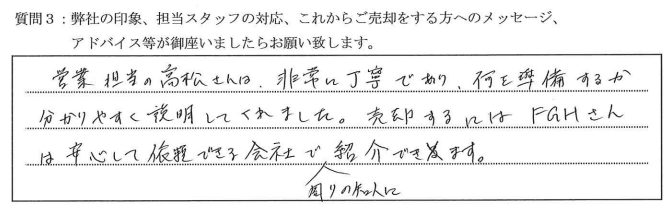 質問３：弊社の印象、担当スタッフの対応、これからご売却をする方へのメッセージ、
アドバイス等が御座いましたらお願い致します。
営業担当の高松さんは、非常に丁寧であり、何を準備するか
分かりやすく説明してくれました。売却するには FGHさん
は安心して依頼できる会社で紹介できます。
周りの知人に